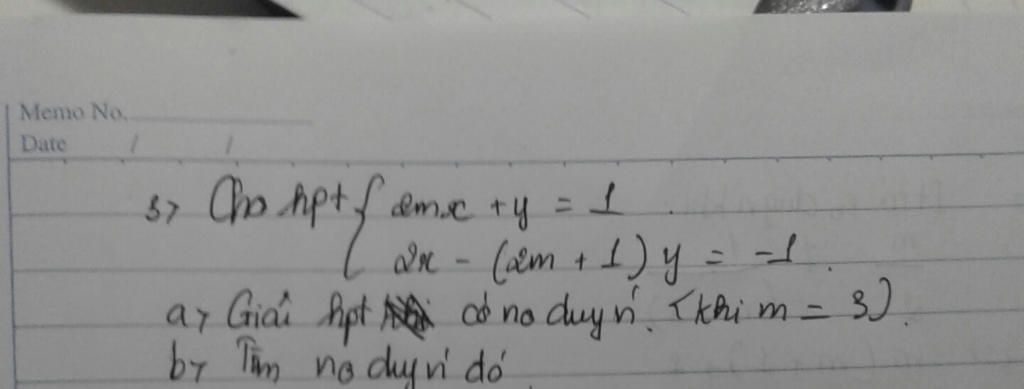 Memo No.
Date / /
3, Cho hpt { 2mx + y = 1
2x - (2m + 1) y = -1.
a, Giải hpt có no duy n'. (khi m = 3).
b, Tìm no duy n' đó